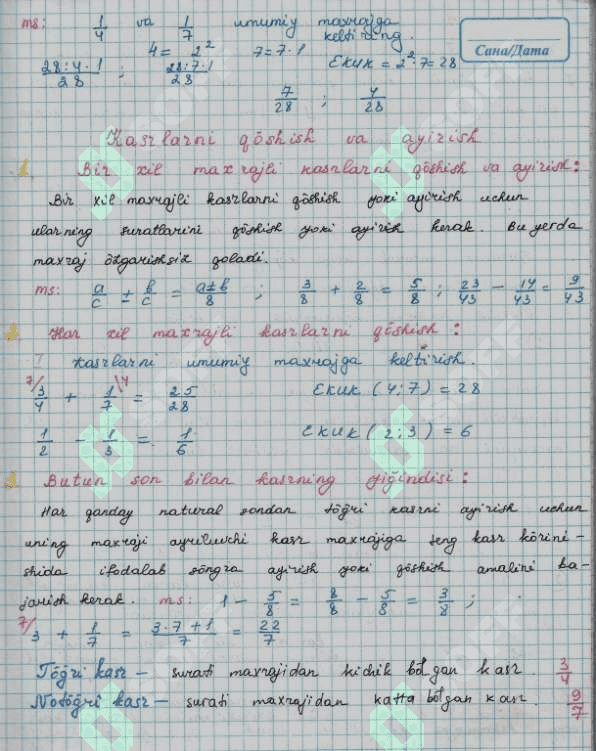 ms: 1/4 va 1/7 umumiy maxrajga
keltiring.
Сана/Дата
4 = 2² 7 = 7·1 EKUK = 2²·7 = 28
28:4·1/28 ; 28:7·1/28
7/28 ; 4/28
Kasrlarni qŏshish va ayirish
1. Bir xil maxrajli kasrlarni qŏshish va ayirish:
Bir xil maxrajli kasrlarni qŏshish yoki ayirish uchun
ularning suratlarini qŏshish yoki ayirish kerak. Bu yerda
maxraj ŏzgarishsiz qoladi.
ms: a/c ± b/c = a±b/8 ; 3/8 + 2/8 = 5/8 ; 23/43 − 14/43 = 9/43
2. Har xil maxrajli kasrlarni qŏshish:
Kasrlarni umumiy maxrajga keltirish.
7/ 3/4 + 1/7 \4 = 25/28 EKUK (4;7) = 28
1/2 − 1/3 = 1/6 EKUK (2;3) = 6
3. Butun son bilan kasrning yiğindisi:
Har qanday natural sondan tŏğri kasrni ayirish uchun
uning maxraji ayriluvchi kasr maxrajiga teng kasr kŏrini-
shida ifodalab sŏngra ayirish yoki qŏshish amalini ba-
jarish kerak. ms: 1 − 5/8 = 8/8 − 5/8 = 3/8 ;
7/ 3 + 1/7 = 3·7+1/7 = 22/7
Tŏğri kasr — surati maxrajidan kichik bŏlgan kasr. 3/4
Notŏğri kasr — surati maxrajidan katta bŏlgan kasr. 9/7